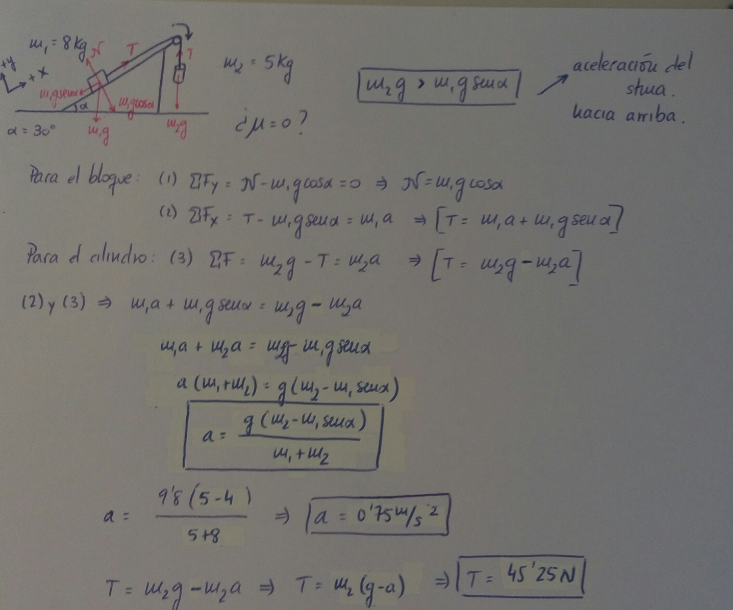 m₁ = 8kg
N
T
T
+y
+x
m₁gsenα
α
m₁gcosα
m₁g
m₂g
α = 30°
m₂ = 5kg
¿μ=0?
m₂g > m₁g senα
aceleración del
stma.
hacia arriba.
Para el bloque: (1) ΣFy = N - m₁gcosα = 0 ⇒ N = m₁gcosα
(2) ΣFx = T - m₁gsenα = m₁a ⇒ [T = m₁a + m₁g senα]
Para el cilindro: (3) ΣF = m₂g - T = m₂a ⇒ [T = m₂g - m₂a]
(2) y (3) ⇒ m₁a + m₁gsenα = m₂g - m₂a
m₁a + m₂a = m₂g - m₁gsenα
a (m₁+m₂) = g(m₂ - m₁senα)
a = g(m₂ - m₁senα) / m₁+m₂
a = 9'8(5-4) / 5+8 ⇒ a = 0'75m/s²
T = m₂g - m₂a ⇒ T = m₂(g-a) ⇒ T = 45'25N